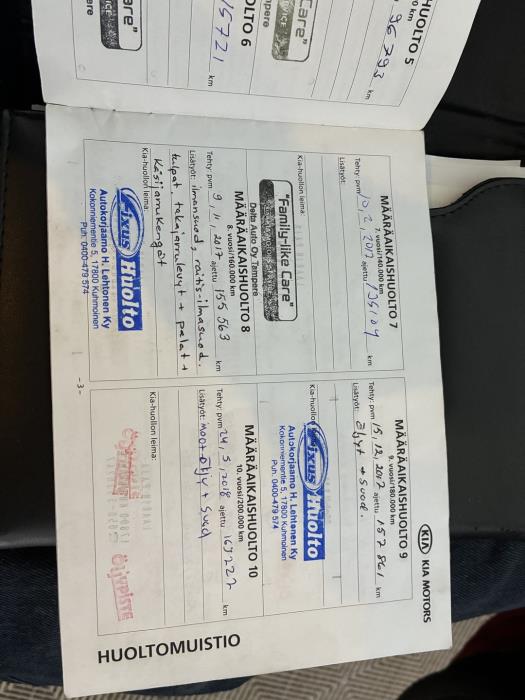 HUOLTO 5
96 793 km
Care"
HUOLTO 6
15721 km
are"
KIA KIA MOTORS
MÄÄRÄAIKAISHUOLTO 7
7. vuosi/140.000 km
Tehty: pvm 10, 2, 2017 ajettu 136104 km
Lisätyöt:
Kia-huollon leima:
"Family-like Care"
Delta Auto Oy Tampere
MÄÄRÄAIKAISHUOLTO 8
8. vuosi/160.000 km
Tehty: pvm 9, 11, 2017 ajettu 155 563 km
Lisätyöt: ilmansuod, raitis-ilmasuod.
tulpat, takajarrulevyt + palat +
Käsijarrukengät
Kia-huollon leima:
Fixus Huolto
Autokorjaamo H. Lehtonen Ky
Kokonniementie 5, 17800 Kuhmoinen
Puh. 0400-479 574
- 3 -
MÄÄRÄAIKAISHUOLTO 9
9. vuosi/180.000 km
Tehty: pvm 15, 12, 2017 ajettu 157 861 km
Lisätyöt: öljyt + suod.
Kia-huollon
Fixus Huolto
Autokorjaamo H. Lehtonen Ky
Kokonniementie 5, 17800 Kuhmoinen
Puh. 0400-479 574
MÄÄRÄAIKAISHUOLTO 10
10. vuosi/200.000 km
Tehty: pvm 24, 5, 2018 ajettu 169227 km
Lisätyöt: Moott.öljy + suod
Kia-huollon leima:
ÖLJYPISTE
HUOLTOMUISTIO